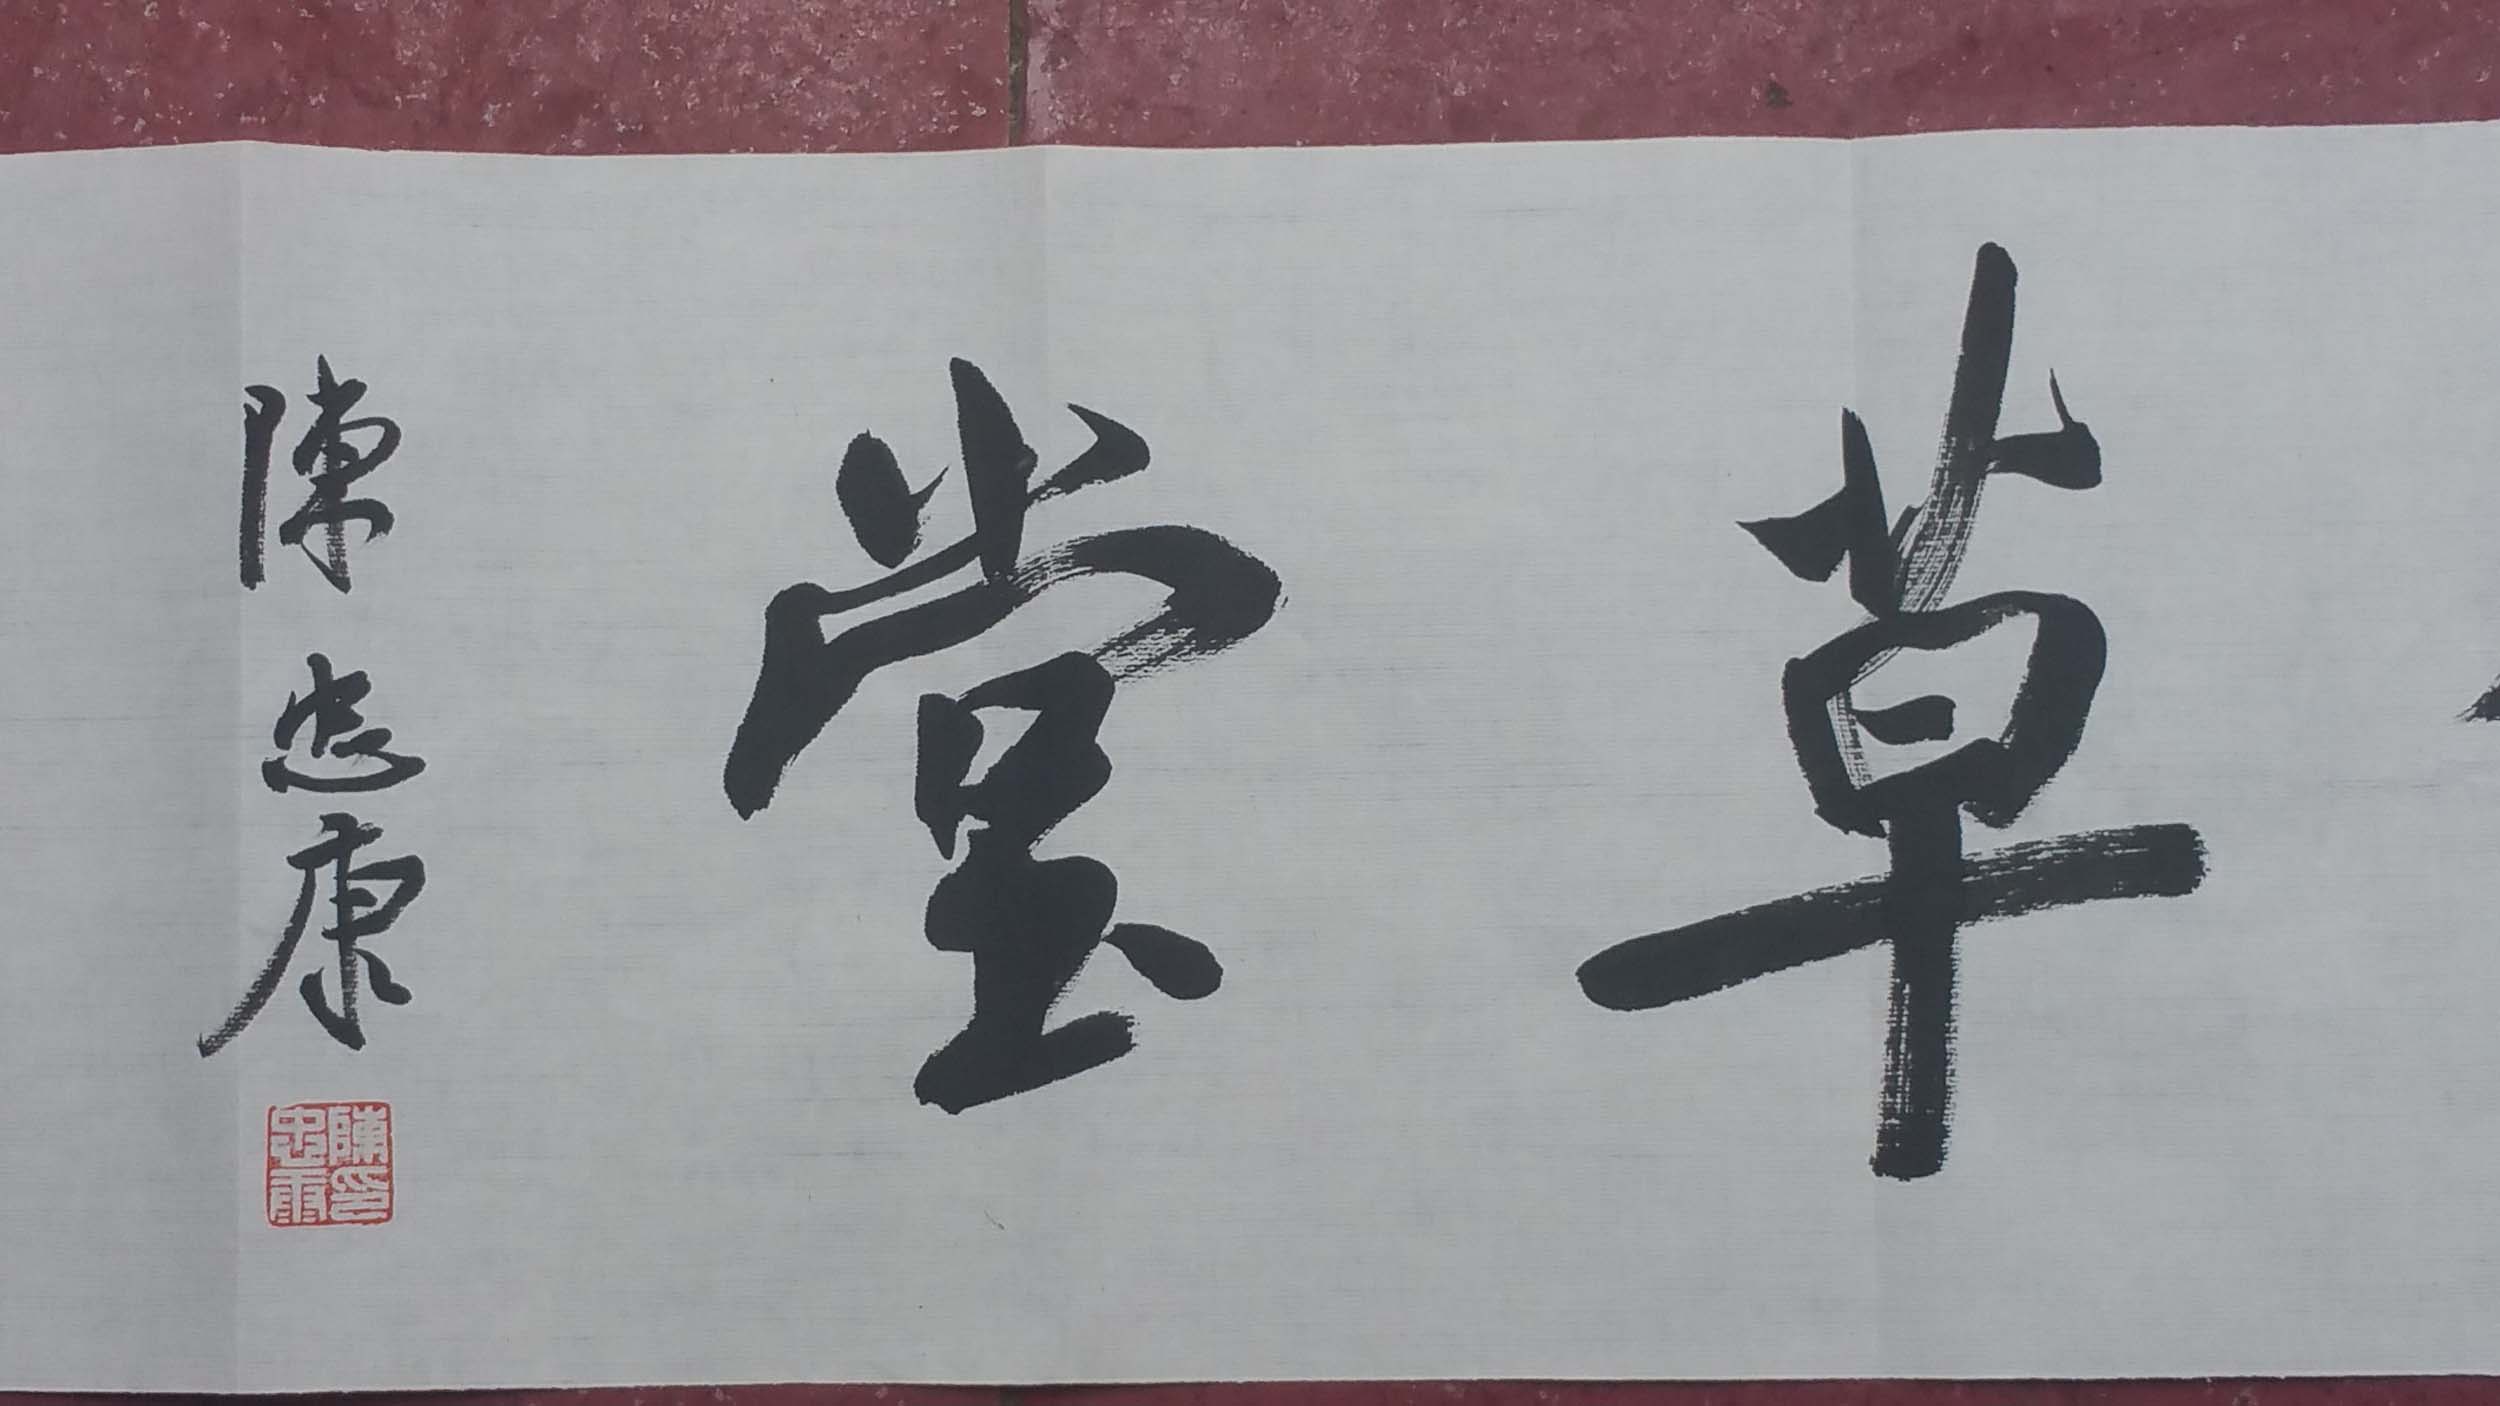 草堂
陳忠康
陳忠康印